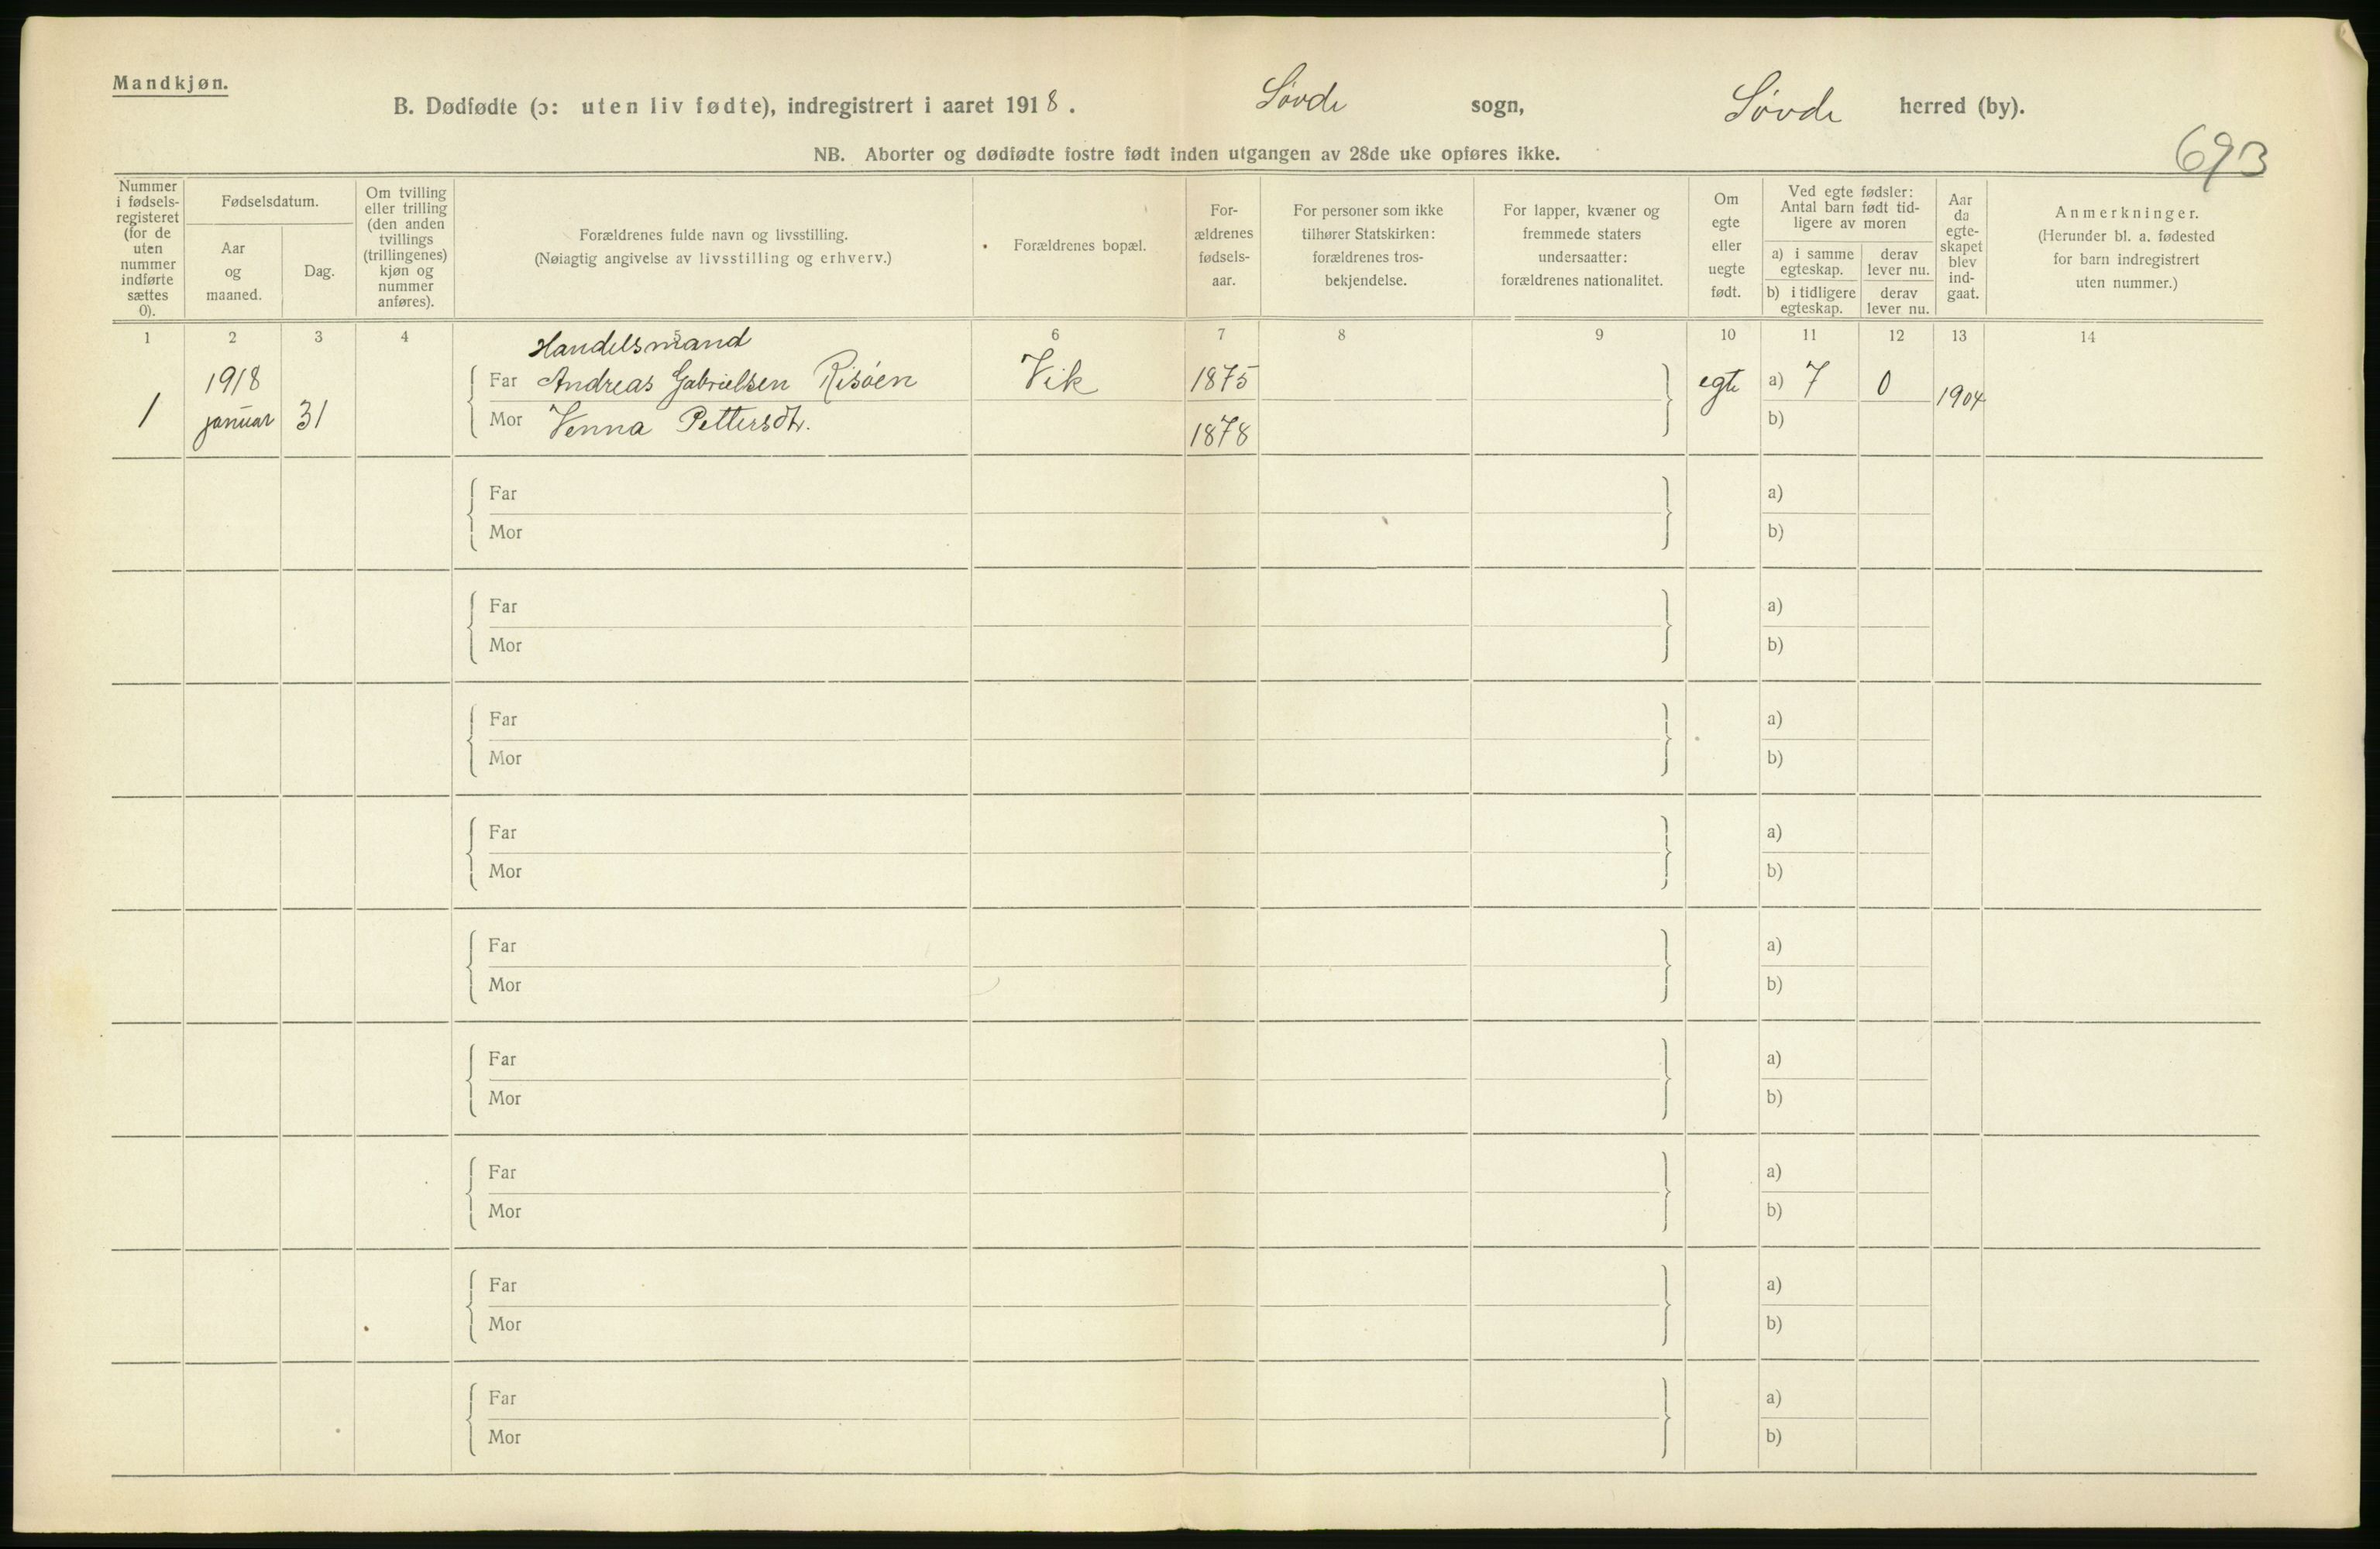 Mandkjøn.
B. Dødfødte (ɔ: uten liv fødte), indregistrert i aaret 1918. Søvde sogn, Søvde herred (by).
693
NB. Aborter og dødfødte fostre født inden utgangen av 28de uke opføres ikke.
Nummer i fødsels-registeret (for de uten nummer indførte sættes 0).
Fødselsdatum.
Aar og maaned.
Dag.
Om tvilling eller trilling (den anden tvillings (trillingenes) kjøn og nummer anføres).
Forældrenes fulde navn og livsstilling.
(Nøiagtig angivelse av livsstilling og erhverv.)
Forældrenes bopæl.
For-ældrenes fødsels-aar.
For personer som ikke tilhører Statskirken: forældrenes tros-bekjendelse.
For lapper, kvæner og fremmede staters undersaatter: forældrenes nationalitet.
Om egte eller uegte født.
Ved egte fødsler: Antal barn født tid-ligere av moren
a) i samme egteskap.
derav lever nu.
b) i tidligere egteskap.
derav lever nu.
Aar da egte-skapet blev ind-gaat.
Anmerkninger.
(Herunder bl. a. fødested for barn indregistrert uten nummer.)
1 2 3 4 5 6 7 8 9 10 11 12 13 14
Handelsmand
1 1918 januar 31
Far Andreas Gabrielsen Risøen Vik 1875 egte a) 7 0 1904
Mor Venna Pettersdtr. 1878 b)
Far a)
Mor b)
Far a)
Mor b)
Far a)
Mor b)
Far a)
Mor b)
Far a)
Mor b)
Far a)
Mor b)
Far a)
Mor b)
Far a)
Mor b)
Far a)
Mor b)